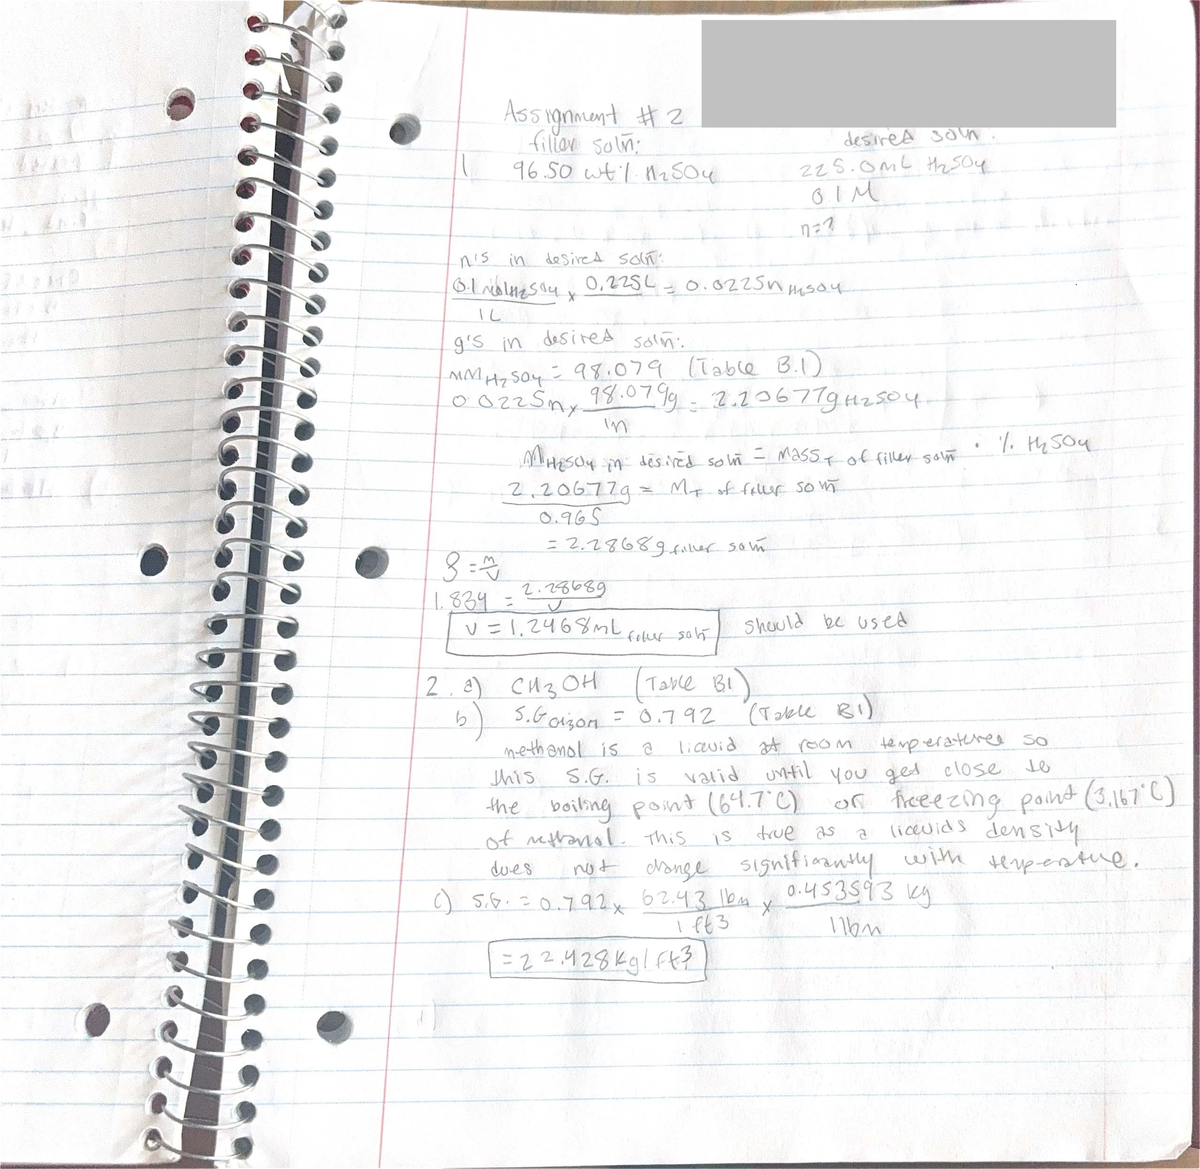 Assignment # 2
filler soln̄: desired soln.
1 96.50 wt% H2SO4 225.0mL H2SO4
0.1M
n=?
n's in desired soln̄:
0.1 molH2SO4 x 0.225L = 0.0225n H2SO4
1L
g's in desired soln̄:
MM H2SO4 = 98.079 (Table B.1)
0.0225n x 98.079g = 2.20677g H2SO4
1n
M H2SO4 in desired soln̄ = MassT of filler soln̄ · % H2SO4
2.20677g = MT of filler soln̄
0.965
= 2.2868g filler soln̄
ρ = m/V
1.834 = 2.2868g
V
V = 1.2468mL filler soln̄ should be used
2. a) CH3OH (Table B1)
b) S.G CH3OH = 0.792 (Table B1)
methanol is a liquid at room temperatures so
this S.G. is valid until you get close to
the boiling point (64.7°C) or freezing point (3.167°C)
of methanol. This is true as a liquids density
does not change significantly with temperature.
c) S.G. = 0.792 x 62.43 lbm x 0.453593 kg
1 ft3 1lbm
= 22.428 kg/ft3